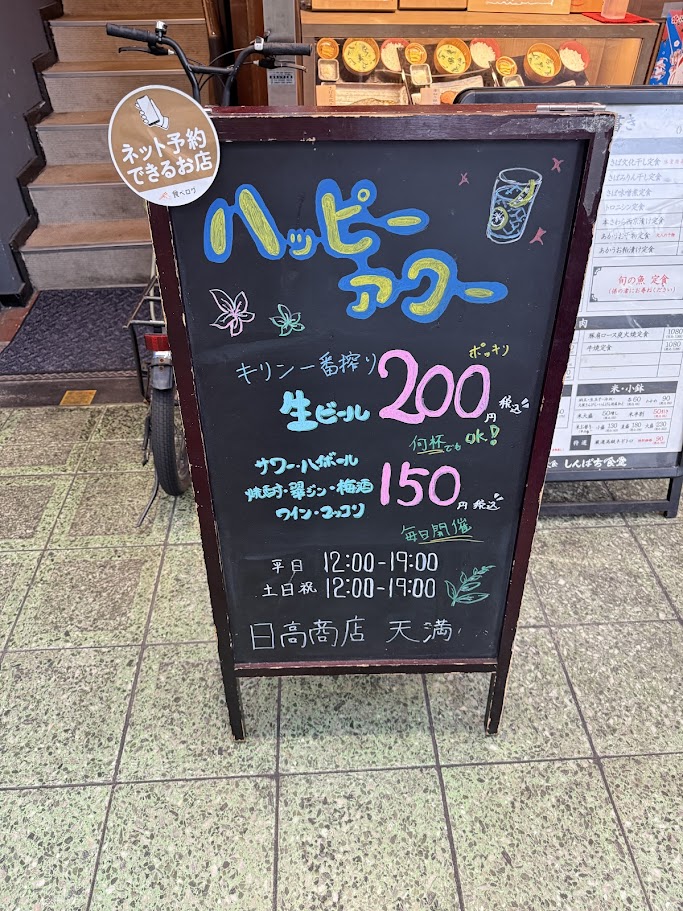 ネット予約
できるお店
食べログ
ハッピー
アワー
キリン一番搾り
生ビール
ポッキリ
200円 税込
何杯でもOK!
サワー・ハイボール
焼酎・翠ジン・梅酒
ワイン・マッコリ
150円 税込
毎日開催
平日 12:00-19:00
土日祝 12:00-19:00
日高商店 天満
さば文化干し定食
さばみりん干し定食
さば味噌煮定食
トロニシン定食
旬の魚 定食
肉
豚肩ロース炭火焼定食 1080
牛焼定食 1080
米・小鉢
しんぱち食堂